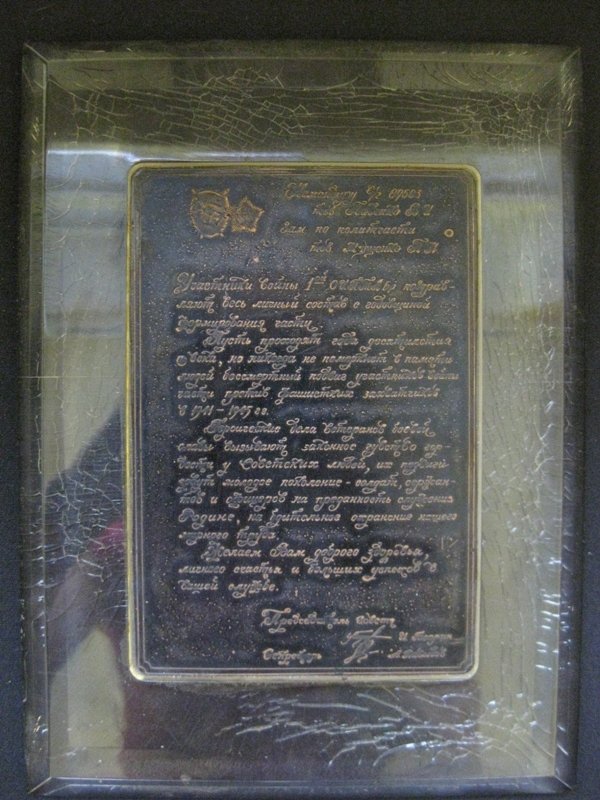 Командиру в/ч
тов. В И
Зам по политчасти
тов. 
Участники войны 1ой поздрав-
ляют весь личный состав с годовщиной
формирования части.
Пусть проходят года десятилетия
века, но никогда не померкнет в памяти
людей бессмертный подвиг участников войны
части против фашистких захватчиков
в 1941 – 1945 гг.
Героические дела ветеранов боевой
славы вызывают законное чувство гор-
дости у Советских людей, их подвиги
молодое поколение - солдат, сержан-
тов и офицеров на преданность служения
Родине, на бдительное охранение нашего
мирного труда.
Желаем Вам доброго здоровья,
личного счастья и больших успехов в
вашей службе.
Председатель совета
И
Секретарь